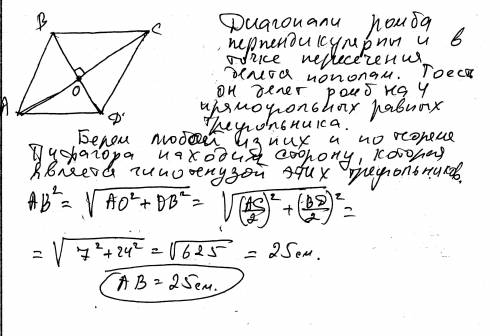 Диагонали ромба
перпендикулярны и в
точке пересечения
делятся пополам. Тоесть
он делет ромб на 4
прямоугольных равных
треугольника.
Берем любой из них и по теореме
Пифагора находим сторону, которая
является гипотенузой этих треугольников.
B C
O
A D
AB² = √AO² + OB² = √(AC/2)² + (BD/2)² =
= √7² + 24² = √625 = 25см.
AB = 25см.